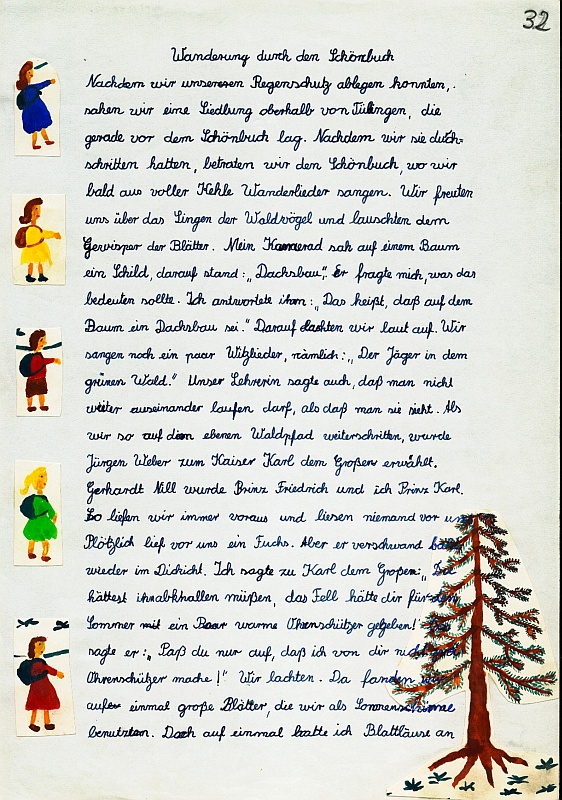 32
Wanderung durch den Schönbuch
Nachdem wir unsereren Regenschutz ablegen konnten,
sahen wir eine Siedlung oberhalb von Tübingen, die
gerade vor dem Schönbuch lag. Nachdem wir sie durch-
schritten hatten, betraten wir den Schönbuch, wo wir
bald aus voller Kehle Wanderlieder sangen. Wir freuten
uns über das Singen der Waldvögel und lauschten dem
Gewisper der Blätter. Mein Kamerad sah auf einem Baum
ein Schild, darauf stand: „Dachsbau". Er fragte mich, was das
bedeuten sollte. Ich antwortete ihm: „Das heißt, daß auf dem
Baum ein Dachsbau sei." Darauf lachten wir laut auf. Wir
sangen noch ein paar Witzlieder, nämlich: „Der Jäger in dem
grünen Wald." Unser Lehrerin sagte auch, daß man nicht
weiter auseinander laufen darf, als daß man sie sieht. Als
wir so auf dem ebenen Waldpfad weiterschritten, wurde
Jürgen Weber zum Kaiser Karl dem Großen erwählt.
Gerhardt Nill wurde Prinz Friedrich und ich Prinz Karl.
So liefen wir immer voraus und liesen niemand vor uns
Plötzlich lief vor uns ein Fuchs. Aber er verschwand bald
wieder im Dickicht. Ich sagte zu Karl dem Großen: „Du
hättest ihn abknallen müßen, das Fell hätte dir für den
Sommer mit ein Paar warme Ohrenschützer gegeben!
sagte er: „Paß du nur auf, daß ich von dir nicht noch
Ohrenschützer mache!" Wir lachten. Da fanden wir
auf einmal große Blätter, die wir als Sonnenschirme
benutzten. Doch auf einmal hatte ich Blattläuse an